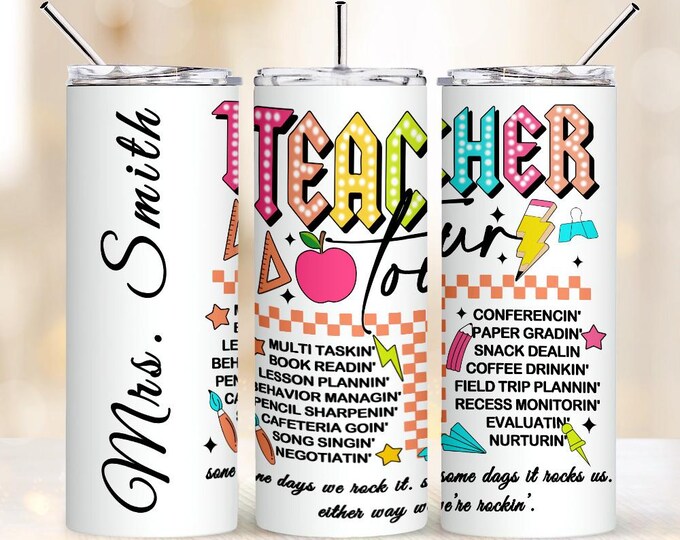 Mrs. Smith
TEACHER
Tour
MULTI TASKIN'
BOOK READIN'
LESSON PLANNIN'
BEHAVIOR MANAGIN'
PENCIL SHARPENIN'
CAFETERIA GOIN'
SONG SINGIN'
NEGOTIATIN'
CONFERENCIN'
PAPER GRADIN'
SNACK DEALIN
COFFEE DRINKIN'
FIELD TRIP PLANNIN'
RECESS MONITORIN'
EVALUATIN'
NURTURIN'
some days we rock it. some dags it rocks us.
either way we're rockin'.